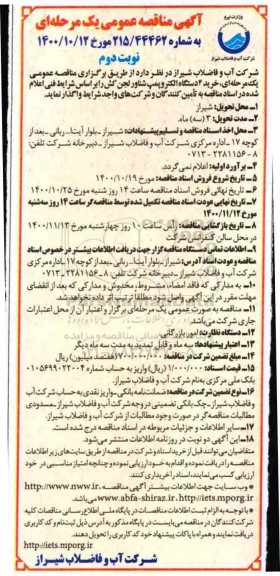 وزارت نیرو
شرکت آب و فاضلاب شیراز
آگهی مناقصه عمومی یک مرحله‌ای
به شماره ۲۱۵/۴۴۴۶۲ مورخ ۱۴۰۰/۱۰/۱۲
نوبت دوم
شرکت آب و فاضلاب شیراز در نظر دارد از طریق برگزاری مناقصه عمومی
یک مرحله‌ای، خرید ۲ دستگاه الکتروپمپ شناور لجن کش را بر اساس شرایط فنی اعلام
شده در اسناد مناقصه به تأمین کنندگان و شرکت‌های واجد شرایط واگذار نماید.
۱- محل تحویل: شیراز
۲- مدت تحویل: ۳ (سه) ماه.
۳- محل اخذ اسناد مناقصه و تسلیم پیشنهادات: شیراز- بلوار آیت‌ا... ربانی- بعد از
کوچه ۱۷- اداره مرکزی شرکت آب و فاضلاب شیراز- دبیرخانه شرکت تلفن:
۸-۳۲۲۸۱۱۵۶-۰۷۱۳
۴- برآورد اولیه: اعلام نمی گردد.
۵- تاریخ شروع فروش اسناد مناقصه: مورخ ۱۴۰۰/۱۰/۱۹
۶- تاریخ نهائی فروش اسناد مناقصه ساعت ۱۴ روز شنبه مورخ ۱۴۰۰/۱۰/۲۵
۷- تاریخ نهایی عودت اسناد مناقصه تکمیل شده توسط مناقصه گر ساعت ۱۴ روز سه‌شنبه
مورخ ۱۴۰۰/۱۱/۱۲
۸- تاریخ بازگشایی مناقصه: رأس ساعت ۱۰ روز چهارشنبه مورخ ۱۴۰۰/۱۱/۱۳
در محل سالن کنفرانس شرکت
۹- اطلاعات تماس دستگاه مناقصه گزار جهت دریافت اطلاعات بیشتر در خصوص اسناد
مناقصه و عودت اسناد آدرس: شیراز- بلوار آیت‌ا... ربانی- بعد از کوچه ۱۷- اداره مرکزی
شرکت آب و فاضلاب شیراز- دبیرخانه شرکت تلفن: ۸-۳۲۲۸۱۱۵۶-۰۷۱۳
۱۰- به مدارکی که فاقد امضاء، مشروط، مخدوش و مدارکی که بعد از انقضای
مهلت مقرر در این آگهی واصل شود مطلقا ترتیب اثر داده نخواهد شد.
۱۱- مناقصه به صورت عمومی یک مرحله‌ای برگزار و اعتبار آن از محل اعتبارات
جاری شرکت می‌باشد.
۱۲- دستگاه نظارت: امور بازرگانی
۱۳- اعتبار پیشنهادها: سه ماه و قابل تمدید به مدت سه ماه دیگر
۱۴- مبلغ تضمین شرکت در مناقصه: ۷۰۰/۰۰۰/۰۰۰ (هفتصد میلیون) ریال
۱۵- قیمت اسناد: ۱/۰۰۰/۰۰۰ (ریال) واریز به حساب شماره ۰۱۰۵۶۹۹۰۲۲۰۰۴
بانک ملی مرکزی به‌نام شرکت آب و فاضلاب شیراز.
۱۶- نوع تضمین شرکت در مناقصه: ضمانت‌نامه بانکی- واریز نقدی به حساب شرکت آب
و فاضلاب شیراز- چک بانکی تضمینی در وجه شرکت آب و فاضلاب شیراز- مسدودی
مطالبات مناقصه گر در صورت وجود مطالبات از شرکت آب و فاضلاب شیراز.
۱۷- سایر اطلاعات و جزئیات مربوطه در اسناد مناقصه درج شده است.
۱۸- این آگهی دو نوبت در روزنامه اطلاعات منتشر می‌شود.
متقاضیان می‌توانند قبل از خرید اسناد و شرکت در مناقصه از طریق سایت‌های زیر اطلاعات
مناقصه را دریافت نموده و اقدام به خرید ارزیابی نموده و چنانچه امتیاز مناسبی در خود
ارزیابی کسب می‌نمایند، اسناد را خریداری کنند.
وب سایت جهت اطلاعات بیشتر آگهی مناقصه، http://www.nww.ir
www.abfa-shiraz.ir ,http://iets.mporg.ir می‌باشد.
* با توجه به الزام ثبت اطلاعات مناقصات در پایگاه ملی اطلاع رسانی مناقصات کلیه
شرکت کنندگان در مناقصه می‌بایست در پایگاه مذکور به آدرس ذیل ثبت نام و کد کاربری
دریافت نمایند و همراه با پاکات پیشنهاد خود کد کاربری را تحویل دهند.
http://iets.mporg.ir
شرکت آب و فاضلاب شیراز